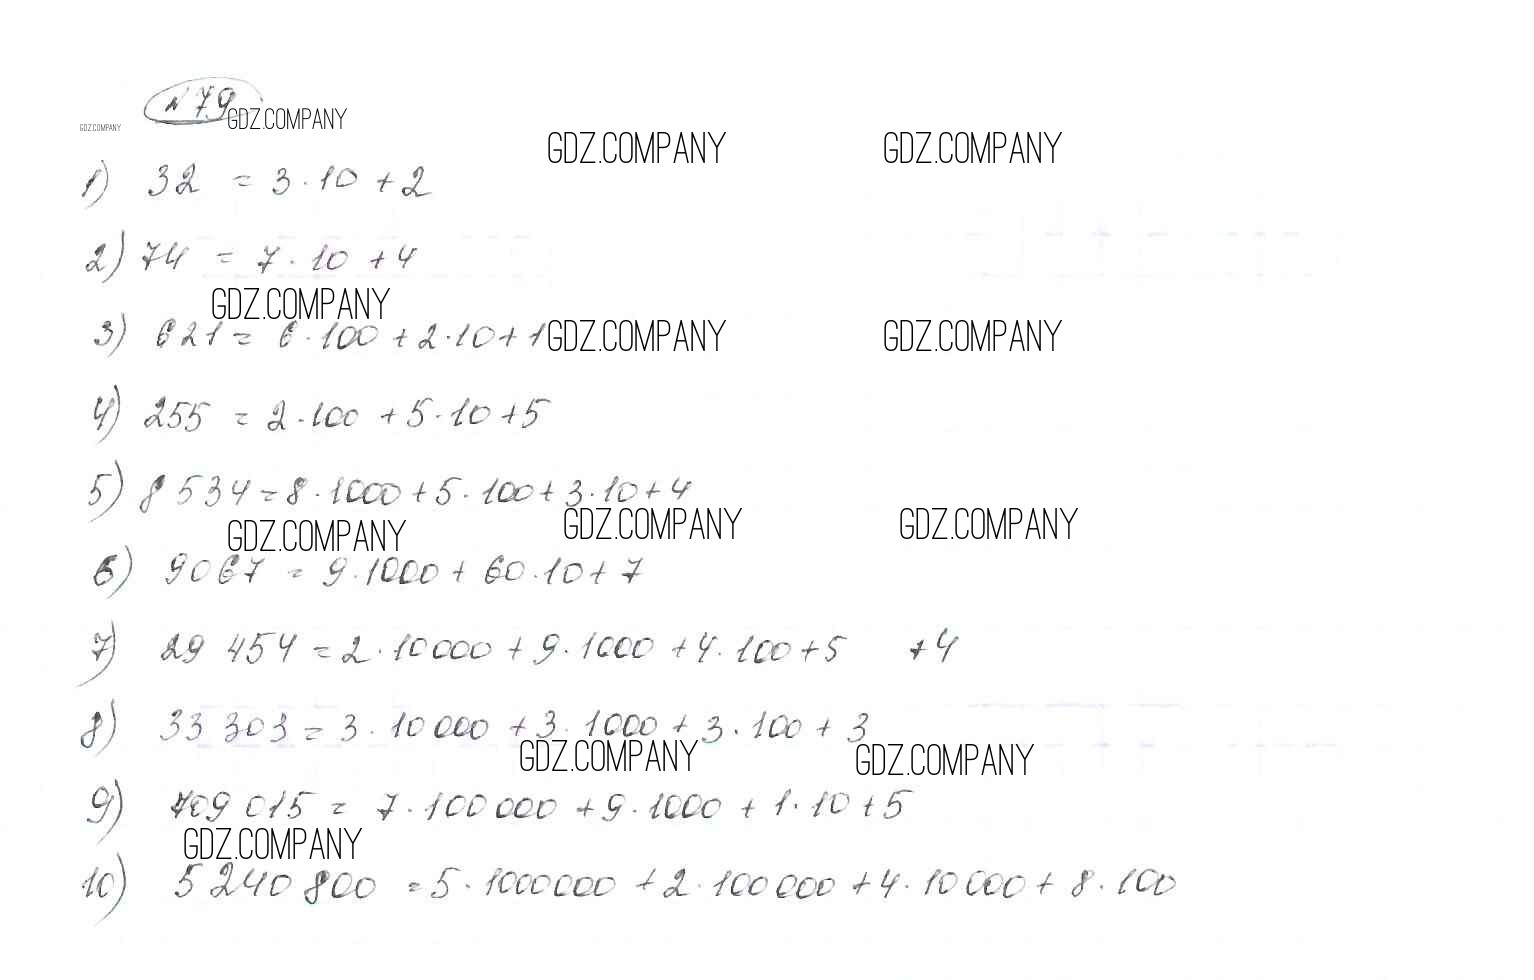 № 79
GDZ.COMPANY
GDZ.COMPANY
GDZ.COMPANY GDZ.COMPANY
1) 32 = 3·10 + 2
2) 74 = 7·10 + 4
GDZ.COMPANY
3) 621 = 6·100 + 2·10 + 1
GDZ.COMPANY GDZ.COMPANY
4) 255 = 2·100 + 5·10 + 5
5) 8 534 = 8·1000 + 5·100 + 3·10 + 4
GDZ.COMPANY GDZ.COMPANY GDZ.COMPANY
6) 9067 = 9·1000 + 60·10 + 7
7) 29 454 = 2·10 000 + 9·1000 + 4·100 + 5 + 4
8) 33 303 = 3·10 000 + 3·1000 + 3·100 + 3
GDZ.COMPANY GDZ.COMPANY
9) 709 015 = 7·100 000 + 9·1000 + 1·10 + 5
GDZ.COMPANY
10) 5 240 800 = 5·1000 000 + 2·100 000 + 4·10 000 + 8·100